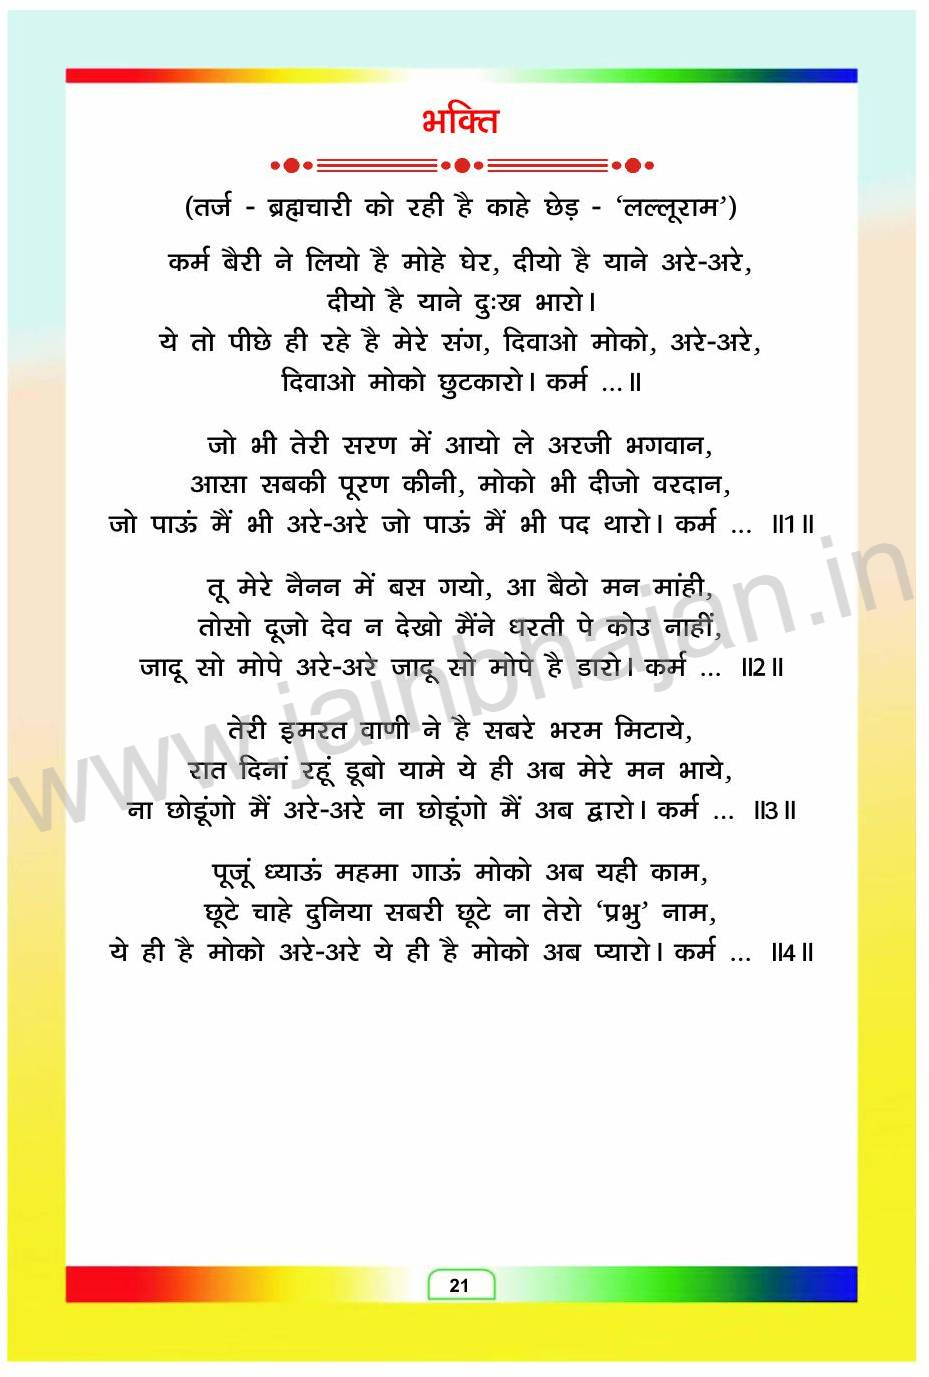 भक्ति
(तर्ज - ब्रह्मचारी को रही है काहे छेड़ - ‘लल्लूराम’)
कर्म बैरी ने लियो है मोहे घेर, दीयो है याने अरे-अरे,
दीयो है याने दुःख भारो।
ये तो पीछे ही रहे है मेरे संग, दिवाओ मोको, अरे-अरे,
दिवाओ मोको छुटकारो। कर्म ...॥
जो भी तेरी सरण में आयो ले अरजी भगवान,
आसा सबकी पूरण कीनी, मोको भी दीजो वरदान,
जो पाऊं मैं भी अरे-अरे जो पाऊं मैं भी पद थारो। कर्म ... ॥1॥
तू मेरे नैनन में बस गयो, आ बैठो मन मांही,
तोसो दूजो देव न देखो मैंने धरती पे कोउ नाहीं,
जादू सो मोपे अरे-अरे जादू सो मोपे है डारो। कर्म ... ॥2॥
तेरी इमरत वाणी ने है सबरे भरम मिटाये,
रात दिनां रहूं डूबो यामे ये ही अब मेरे मन भाये,
ना छोडूंगो मैं अरे-अरे ना छोडूंगो मैं अब द्वारो। कर्म ... ॥3॥
पूजूं ध्याऊं महमा गाऊं मोको अब यही काम,
छूटे चाहे दुनिया सबरी छूटे ना तेरो ‘प्रभु’ नाम,
ये ही है मोको अरे-अरे ये ही है मोको अब प्यारो। कर्म ... ॥4॥
www.jainbhajan.in
21